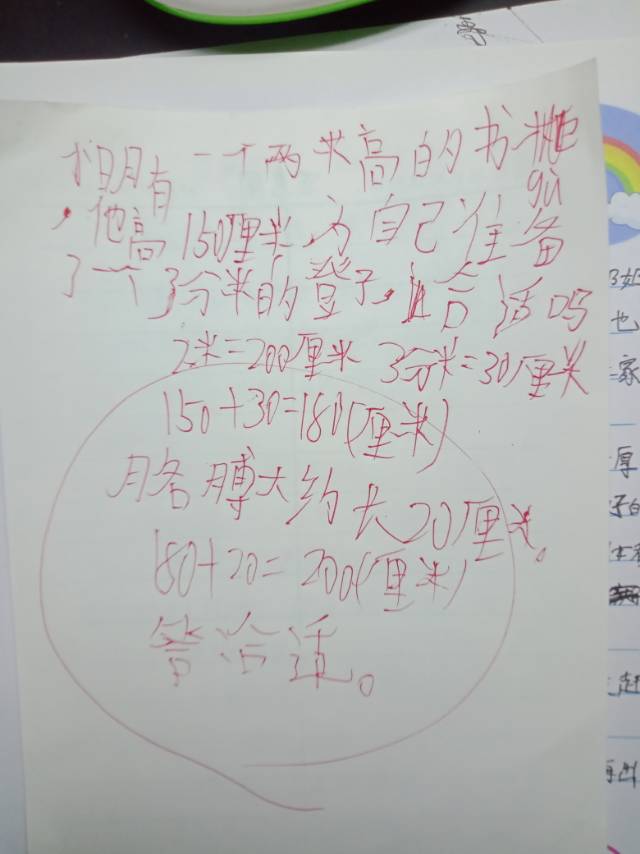 小明有一个两米高的书柜
gùi
，他高150厘米,为自己准备
了一个3分米的登子,合适吗
2米=200厘米 3分米=30厘米
150+30=180(厘米)
胳膊大约长20厘米。
180+20=200(厘米)
答洽适。
也
家
厚